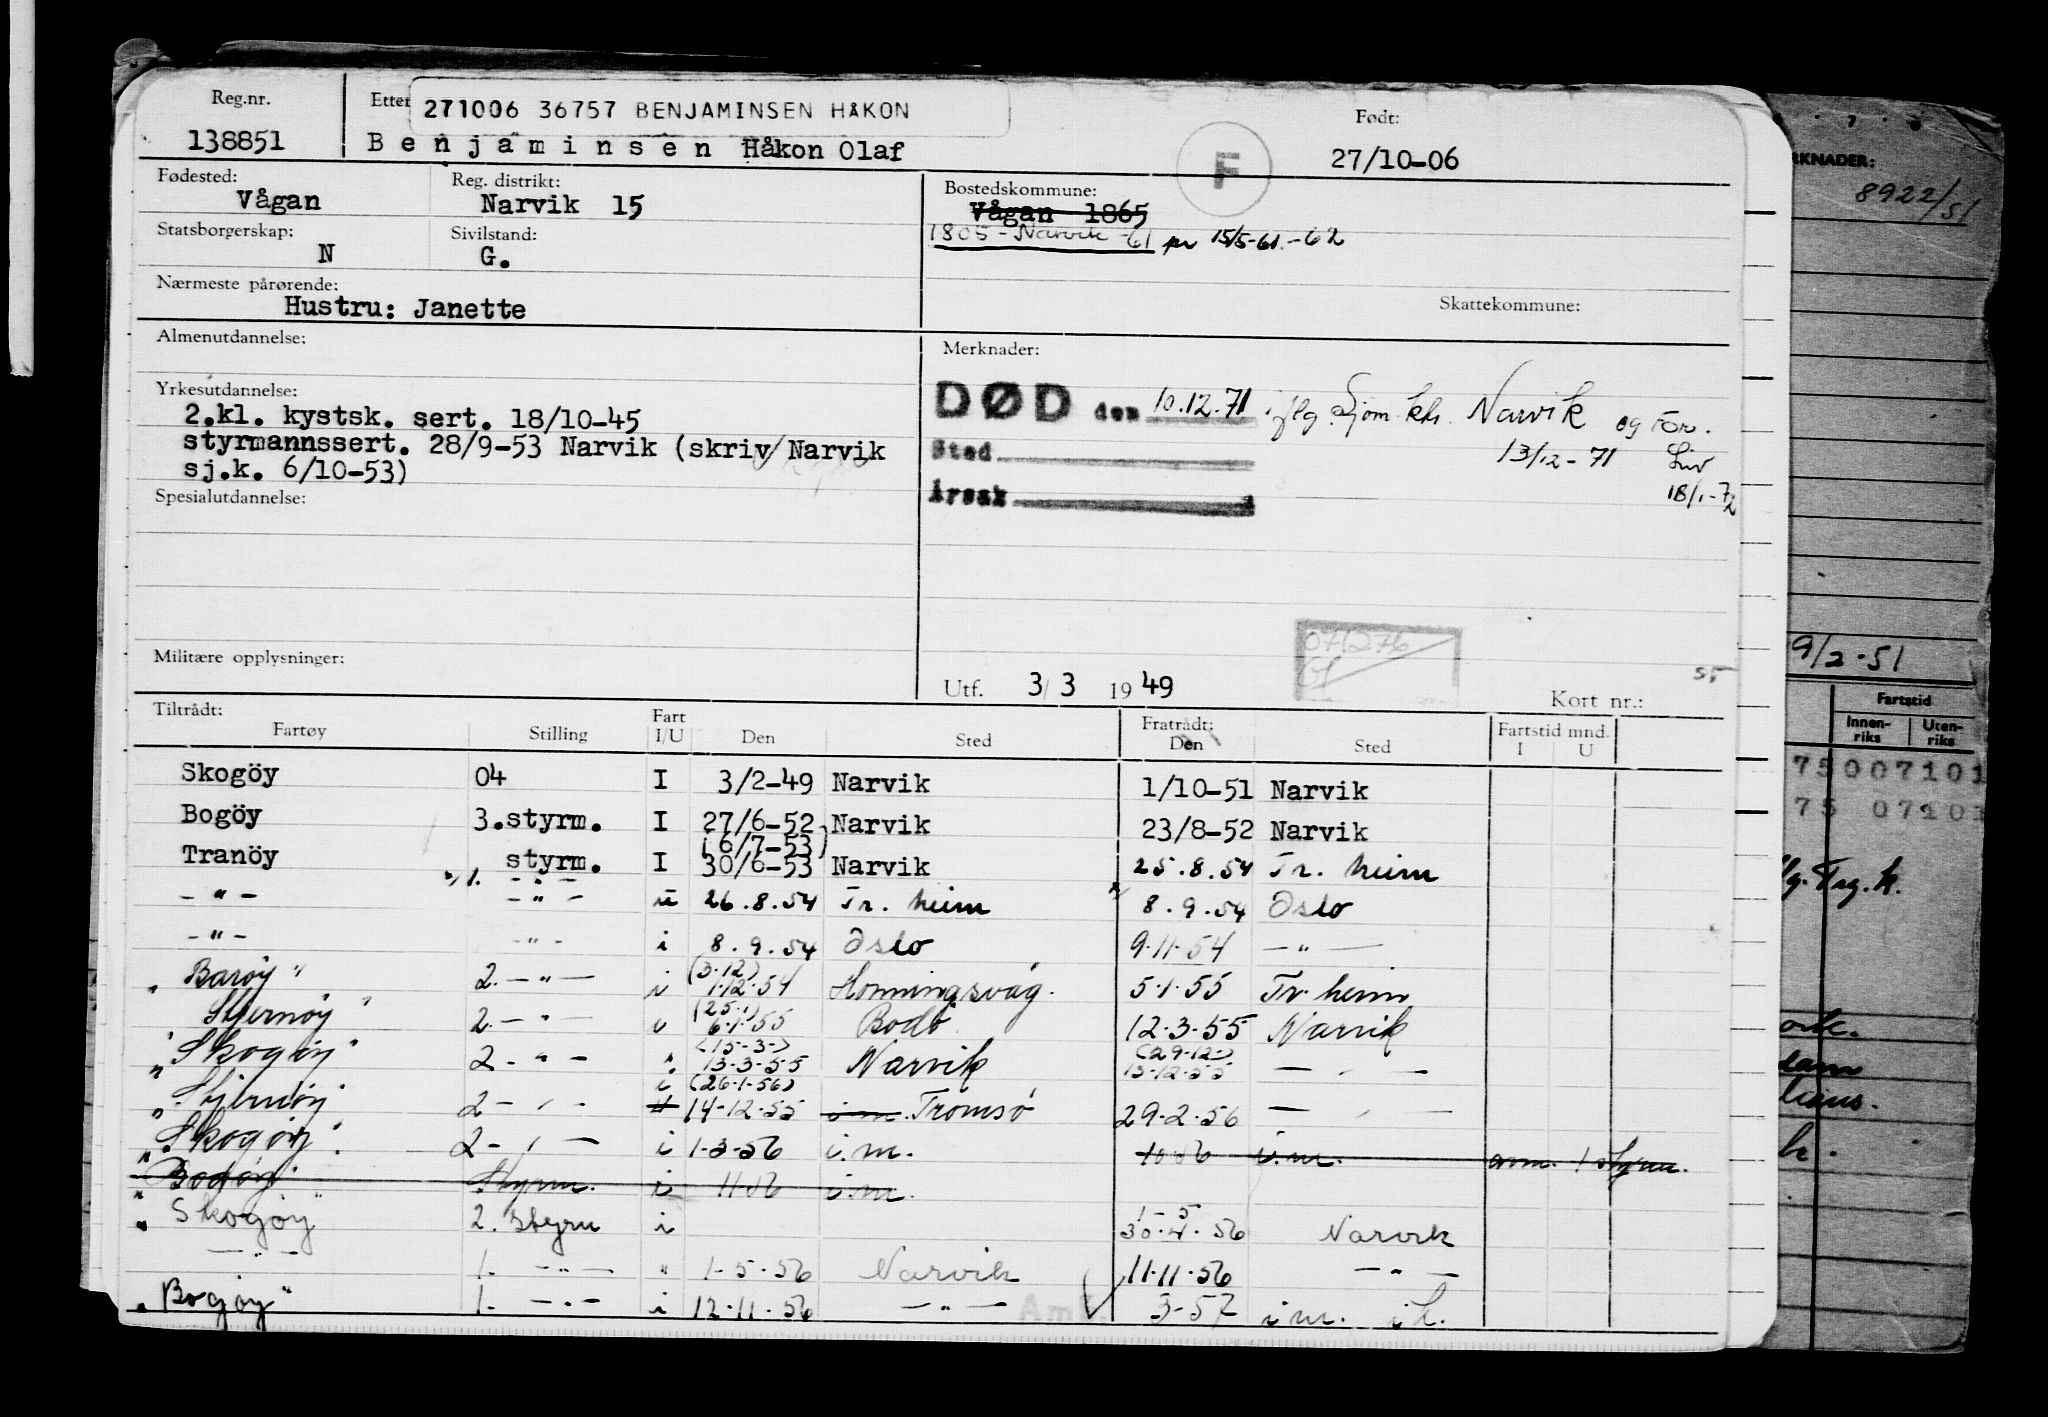 Reg.nr.
138851
Etter
271006 36757 BENJAMINSEN HÅKON
Benjaminsen Håkon Olaf
F
Født:
27/10-06
Fødested:
Vågan
Reg. distrikt:
Narvik 15
Bostedskommune:
Vågan 1865
1805 - Narvik -61 pr 15/5-61.-62
Statsborgerskap:
N
Sivilstand:
G.
Nærmeste pårørende:
Hustru: Janette
Skattekommune:
Almenutdannelse:
Merknader:
Yrkesutdannelse:
2.kl. kystsk. sert. 18/10-45
styrmannssert. 28/9-53 Narvik (skriv Narvik
sj.k. 6/10-53)
DØD den 10.12.71 iflg. Sjøm.ktr. Narvik og For.
13/12-71
18/1-72
Sted
Årsak
Spesialutdannelse:
Militære opplysninger:
071276
Utf. 3/3 1949
55
Kort nr.:
Tiltrådt:
Fartøy Stilling Fart I/U Den Sted Fratrådt: Den Sted Fartstid mnd. I U
Skogöy 04 I 3/2-49 Narvik 1/10-51 Narvik
Bogöy 3.styrm. I 27/6-52 Narvik 23/8-52 Narvik
(6/7-53)
Tranöy styrm. I 30/6-53 Narvik 25.8.54 Tr. heim
-"- 1. -"- u 26.8.54 Tr. heim 8.9.54 Oslo
-"- -"- i 8.9.54 Oslo 9.11.54 -"-
(3.12)
"Barøy" 2. -"- i 1.12.54 Honningsvåg. 5.1.55 Tr. heim
(25.1)
Stjernøy" 2. -"- i 6.1.55 Bodø 12.3.55 Narvik
(15-3-) (29-12-)
"Skogøy" 2 -"- " 13-3-55 Narvik 13-12-55 -"-
(26-1-56)
"Stjernøy 2 -"- i 14-12-55 i.m. Tromsø 29.2.56 -"-
"Skogøy" 2 -"- i 1-3-56 i.m. i.m. 1 styrm.
"Bodøy" Styrm. i i.m.
"Skogøy" 2. styrm i 30.4.56 Narvik
1-5
-"- 1. -"- " 1-5-56 Narvik 11.11.56 -"-
"Bogøy" 1. -"- i 12.11.56 -"- 3-57 i m.
RKNADER:
8922/51
9/2-51
Fartstid
Innen-
riks
Uten-
riks
75007101
75 07101